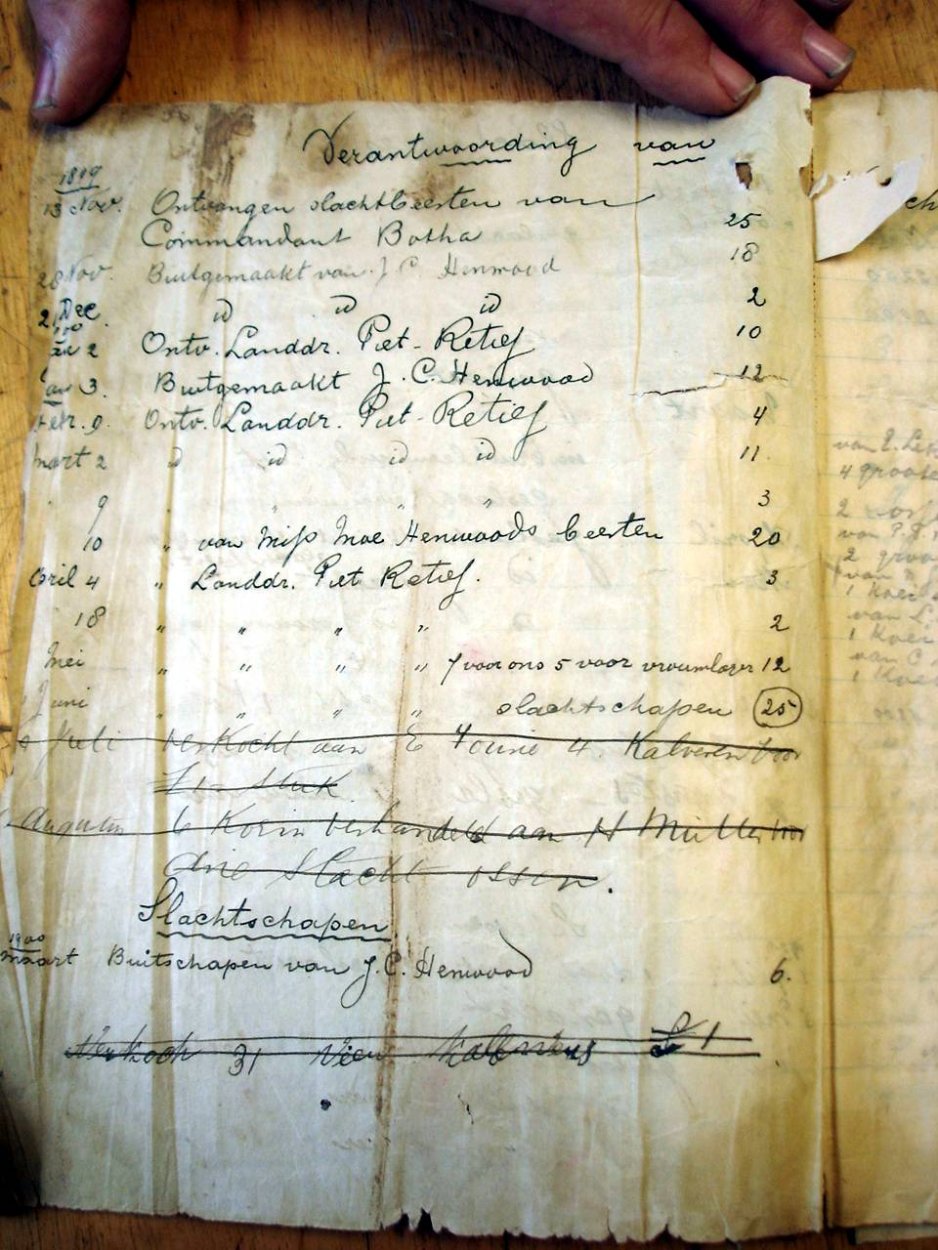 Verantwoording van
1899
13 Nov. Ontvangen slachtbeesten van
Commandant Botha 25
28 Nov. Buitgemaakt van J. C. Henwood 18
2 Dec id id id 2
2 Ontv. Landdr. Piet-Retief 10
3. Buitgemaakt J. C. Henwood 12
Febr. 9. Ontv. Landdr. Piet-Retief 4
Maart 2 id id id id 11
9 " " " 3
10 " van Miss Moe Henwoods beesten 20
April 4 " Landdr. Piet Retief. 3
18 " " " " 2
Mei " " " " 7 voor ons 5 voor vrouwlager 12
Juni " " " " slachtschapen 25
Juli verkocht aan E 4 Kalveren voor
£1- stuk
Augustus 6 Koein verhandeld aan H Muller voor
drie Slacht ossen.
Slachtschapen
1900
Maart Buitschapen van J. C. Henwood 6.
Verkoch 31 £1
van
4 groote
2
van
2
van
1 Koei
van L.
1 Koei
van C
1 Koei